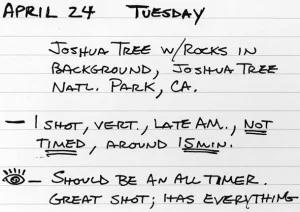 APRIL 24 TUESDAY
JOSHUA TREE W/ROCKS IN
BACKGROUND, JOSHUA TREE
NATL. PARK, CA.
— 1 SHOT, VERT., LATE AM., NOT
TIMED, AROUND 15MIN.
— SHOULD BE AN ALL TIMER.
GREAT SHOT; HAS EVERYTHING